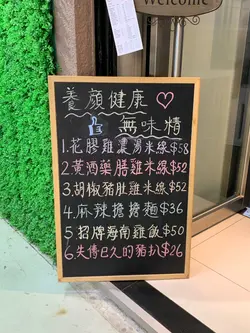 Welcome
養顏健康
無味精
1.花膠雞濃湯米線$58
2.黃酒藥膳雞米線$52
3.胡椒豬肚雞米線$52
4.麻辣擔擔麵$36
5.招牌海南雞飯$50
6.失傳已久的豬扒$26